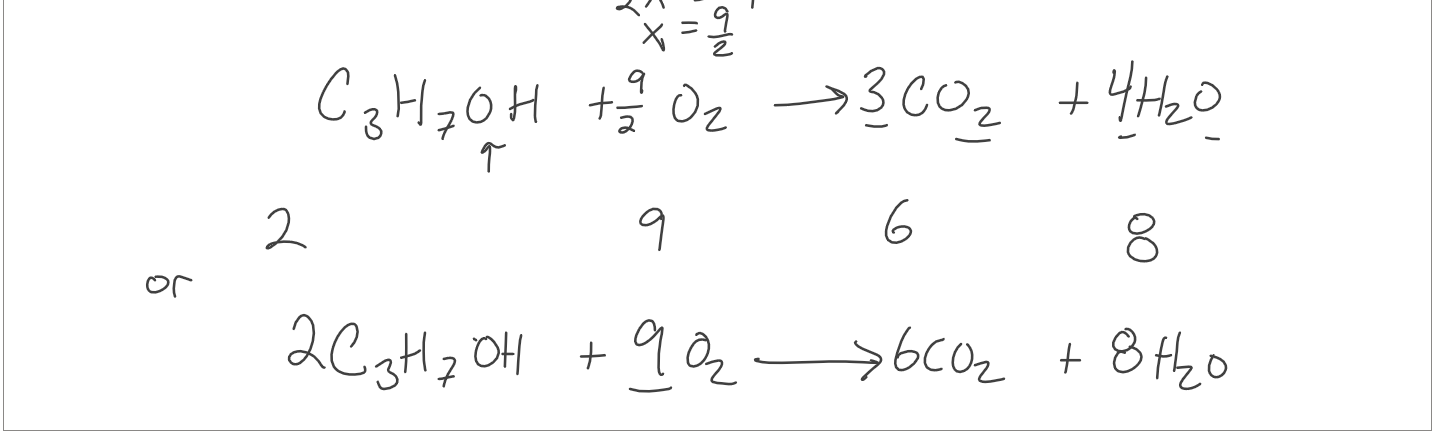 x = 9/2
C₃H₇OH + 9/2 O₂ → 3CO₂ + 4H₂O
↑
2 9 6 8
or
2C₃H₇OH + 9O₂ → 6CO₂ + 8H₂O